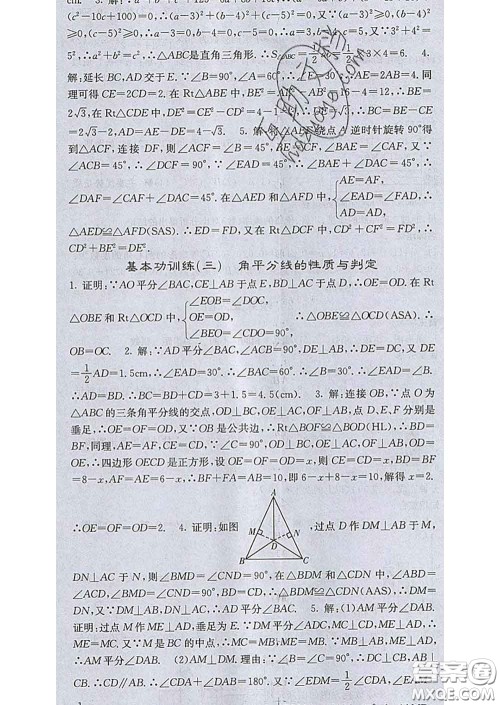 (c²-10c+100)=0,∴(a-3)²+(b-4)²+(c-5)²=0,又∵(a-3)²≥0,(b-4)²
≥0,(c-5)²≥0,∴a-3=0,b-4=0,c-5=0,∴a=3,b=4,c=5. 又∵3²+4²=
5²,∴a²+b²=c²,∴△ABC是直角三角形.
×3×4=6. 4.
解:延长BC,AD交于E.∵∠B=90°,∠A=60°,
∴AE=2AB=4.同
理可得CE=2CD=2.在Rt△ABE中,BE²=
16-4=12,∴BE=
2√3,在Rt△CDE中,DE²=CE²-CD²=4-1
∴BC=BE-CE
=2√3-2,AD=AE-DE=4-√3. 5.
绕点A逆时针旋转90°得
到△ACF,连接DF,则
又∵∠
ACB=45°,∴∠DCF=90°,∵∠EAD=45°,
∠DAC=45°,∴
∠DAF=∠CAF+∠DAC=45°.在△AED和△AFD中,{AE=AF,
∠EAD=∠FAD,∴
AD=AD,
△AED≌△AFD(SAS).∴ED=FD,又在Rt△DCF中,CD²+CF²=DF²,∴
CD²+BE²=DE².
基本功训练(三) 角平分线的性质与判定
1. 证明:∵AO平分∠BAC,CE⊥AB于点E,BD⊥AC于点D,∴OE=OD.在Rt
△OBE和Rt△OCD中,{∠EOB=∠DOC,
OE=OD, ∴△OBE≌△OCD(ASA).∴
∠BEO=∠CDO=90°,
OB=OC. 2. 解:∵AD平分∠BAC,∠BAC=90°,DE⊥AB,∴DE=DC,又DE
=1/2AD=1.5cm,∴∠EAD=30°,∴∠EAC=60°,∴∠B=30°,∴∠EAD=∠B,
∴AD=BD.∴BC=BD+CD=3+1.5=4.5(cm). 3. 解:连接OB,∵点O为
△ABC的三条角平分线的交点,OD⊥BC,OE⊥AC,OF⊥AB,点D,E,F分别是
垂足,∴OE=OF=OD,又∵OB是公共边,∴Rt△BOF≌△BOD(HL),∴BD=
BF,同理,AE=AF,CE=CD.∵∠C=90°,OD⊥BC,OE⊥AC,OF⊥AB,OD=
OE,∴四边形OECD是正方形,设OE=OF=OD=x,则CE=CD=x,BD=BF
=8-x,AF=AE=6-x,∴BF+FA=AB=10,即6-x+8-x=10,解得x=2.
∴OE=OF=OD=2. 4. 证明:如图 ,过点D作DM⊥AB于M,
A
M
N
D
B C
DN⊥AC于N,则∠BMD=∠CND=90°,在△BDM和△CDN中,∠ABD=
∠ACD,∠BMD=∠CND=90°,BD=CD,∴△BDM≌△CDN(AAS),∴DM=
DN,又∵DM⊥AB,DN⊥AC,∴AD平分∠BAC. 5. 解:(1)AM平分∠DAB.
证明:过点M作ME⊥AD,垂足为E,∵DM平分∠ADC,MC⊥CD,ME⊥AD,∴
ME=MC.又∵M是BC的中点,∴MC=MB,∴ME=MB.又MB⊥AB,ME⊥AD,
∴AM平分∠DAB. (2)AM⊥DM.理由:∵∠B=∠C=90°,∴DC⊥CB,AB⊥
CB.∴CD∥AB.∴∠CDA+∠DAB=180°.又∵∠EDM=1/2∠CDA,∠EAM=